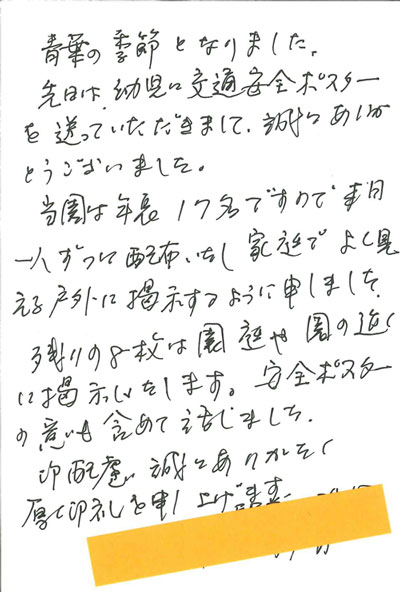 青葉の季節となりました。
先日は、幼児に交通安全ポスター
を送っていただきまして、誠にありが
とうございました。
当園は年長17名ですので本日
一人ずつに配布いたし家庭でよく見
える戸外に掲示するように申しました。
残りの8枚は園庭や園の近く
に掲示いたします。安全ポスター
の意味も含めて話しました。
御配慮、誠にありがたく
厚く御礼を申し上げます。